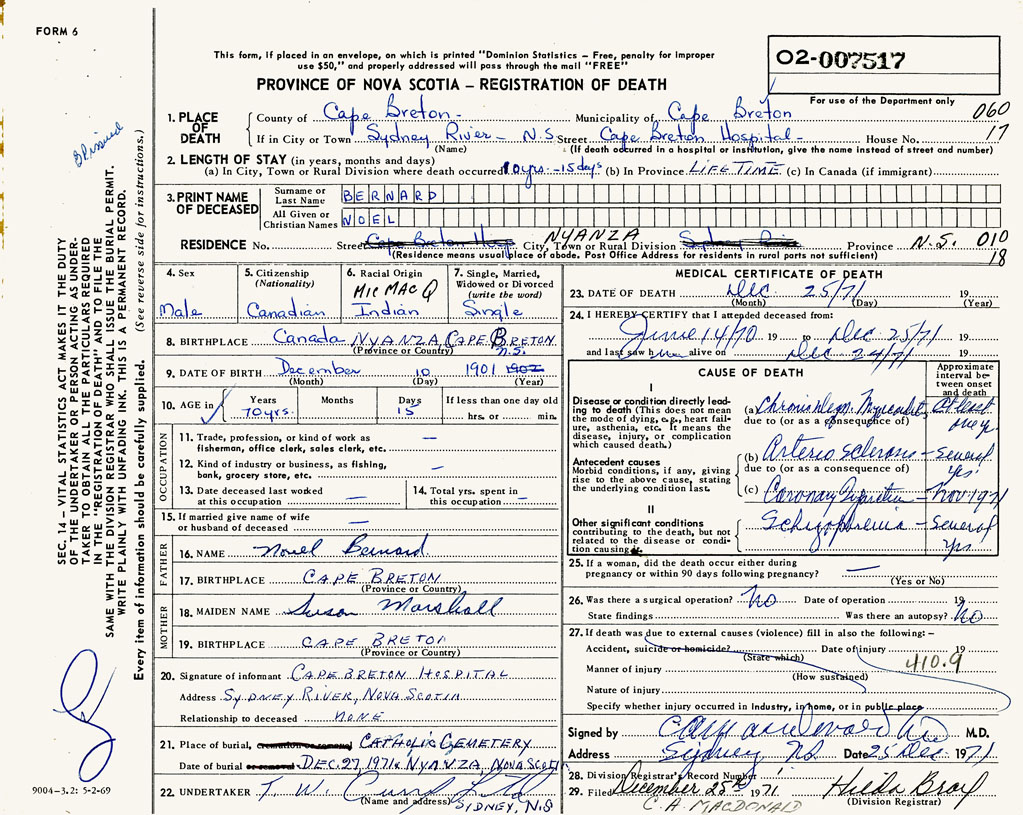 FORM 6
This form, if placed in an envelope, on which is printed "Dominion Statistics – Free, penalty for improper
use $50," and properly addressed will pass through the mail "FREE"
PROVINCE OF NOVA SCOTIA – REGISTRATION OF DEATH
02-007517
For use of the Department only
060
17
1. PLACE OF DEATH
County of Cape Breton – Municipality of Cape Breton
If in City or Town Sydney River – N.S. Street Cape Breton Hospital – House No.
(Name) (If death occurred in a hospital or institution, give the name instead of street and number)
2. LENGTH OF STAY (in years, months and days)
(a) In City, Town or Rural Division where death occurred 10 yrs. – 15 days (b) In Province LIFE TIME (c) In Canada (if immigrant)
3. PRINT NAME OF DECEASED
Surname or Last Name BERNARD
All Given or Christian Names NOEL
RESIDENCE No. Street Cape Breton Hosp. City, Town or Rural Division NYANZA Province N.S. 010
(Residence means usual place of abode. Post Office Address for residents in rural parts not sufficient) 18
4. Sex
Male
5. Citizenship (Nationality)
Canadian
6. Racial Origin
MIC MAC Q
Indian
7. Single, Married, Widowed or Divorced (write the word)
Single
8. BIRTHPLACE Canada NYANZA, CAPE BRETON N.S.
(Province or Country)
9. DATE OF BIRTH December 10 1901 1902
(Month) (Day) (Year)
10. AGE in Years Months Days If less than one day old
70 yrs. 15 hrs. or min.
OCCUPATION
11. Trade, profession, or kind of work as
fisherman, office clerk, sales clerk, etc. —
12. Kind of industry or business, as fishing,
bank, grocery store, etc. —
13. Date deceased last worked
at this occupation —
14. Total yrs. spent in
this occupation —
15. If married give name of wife
or husband of deceased —
FATHER
16. NAME Noel Bernard
17. BIRTHPLACE CAPE BRETON
(Province or Country)
MOTHER
18. MAIDEN NAME Susan Marshall
19. BIRTHPLACE CAPE BRETON
(Province or Country)
20. Signature of informant CAPE BRETON HOSPITAL
Address SYDNEY RIVER, NOVA SCOTIA
Relationship to deceased NONE
21. Place of burial, cremation or removal CATHOLIC CEMETERY
Date of burial or removal DEC. 27, 1971 NYANZA, NOVA SCOTI
22. UNDERTAKER T. W.
(Name and address) SIDNEY, N.S
MEDICAL CERTIFICATE OF DEATH
23. DATE OF DEATH Dec. 25/71 19
(Month) (Day) (Year)
24. I HEREBY CERTIFY that I attended deceased from:
June 14/70 19 to Dec 25/71
and last saw him alive on Dec 24/71 19
CAUSE OF DEATH
Approximate interval between onset and death
I
Disease or condition directly leading to death (This does not mean
the mode of dying, e.g., heart failure, asthenia, etc. It means the
disease, injury, or complication
which caused death.)
(a) Chronic At least
due to (or as a consequence of)
Antecedent causes
Morbid conditions, if any, giving
rise to the above cause, stating
the underlying condition last.
(b) Arterio sclerosis – several yrs.
due to (or as a consequence of)
(c) Coronary – Nov 1971
II
Other significant conditions
contributing to the death, but not
related to the disease or condition causing it.
Schizophrenia – Several yrs
25. If a woman, did the death occur either during
pregnancy or within 90 days following pregnancy? —
(Yes or No)
26. Was there a surgical operation? No Date of operation 19
State findings Was there an autopsy? No
27. If death was due to external causes (violence) fill in also the following: –
Accident, suicide or homicide? Date of injury 19
(State which)
410.9
Manner of injury
(How sustained)
Nature of injury
Specify whether injury occurred in industry, in home, or in public place
Signed by M.D.
Address Sydney NS Date 25 Dec 1971
28. Division Registrar's Record Number 1
29. Filed December 25th 1971
C. A. MACDONALD
(Division Registrar)
SEC. 14 – VITAL STATISTICS ACT MAKES IT THE DUTY
OF THE UNDERTAKER OR PERSON ACTING AS UNDER-
TAKER TO OBTAIN ALL THE PARTICULARS REQUIRED
IN THE "REGISTRATION OF DEATH" AND TO FILE THE
SAME WITH THE DIVISION REGISTRAR WHO SHALL ISSUE THE BURIAL PERMIT.
WRITE PLAINLY WITH UNFADING INK. THIS IS A PERMANENT RECORD.
Every item of information should be carefully supplied. (See reverse side for instructions.)
9004-3.2: 5-2-69